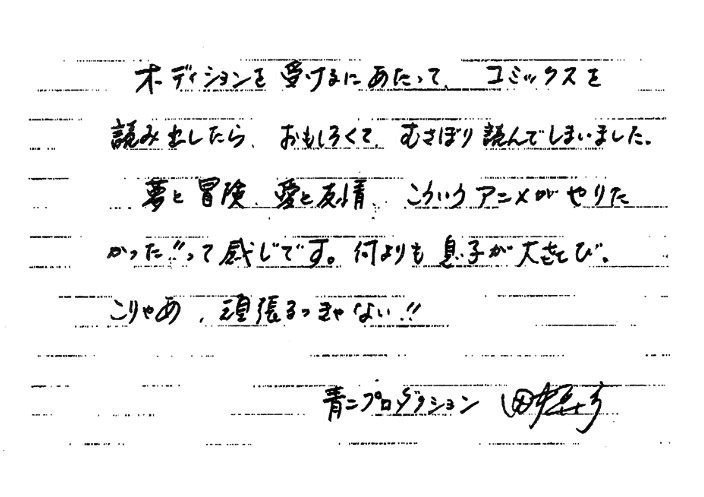 オーディションを受けるにあたって、コミックスを
読み出したら、おもしろくて、むさぼり読んでしまいました。
夢と冒険、愛と友情、こういうアニメがやりた
かった!!って感じです。何よりも息子が大喜び。
こりゃあ、頑張るっきゃない!!
青二プロダクション 田中